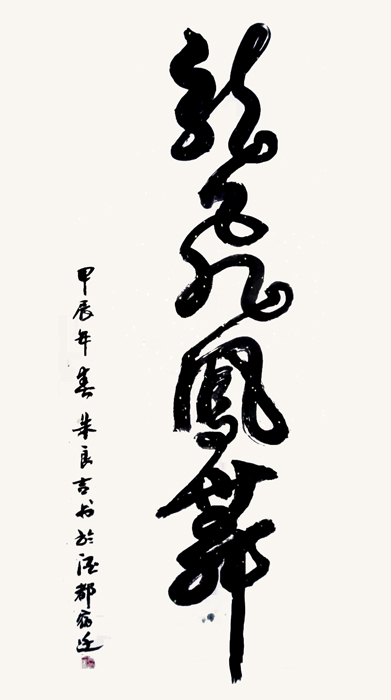 龍飛鳳舞
甲辰年春朱良吉书於酒都宿迁